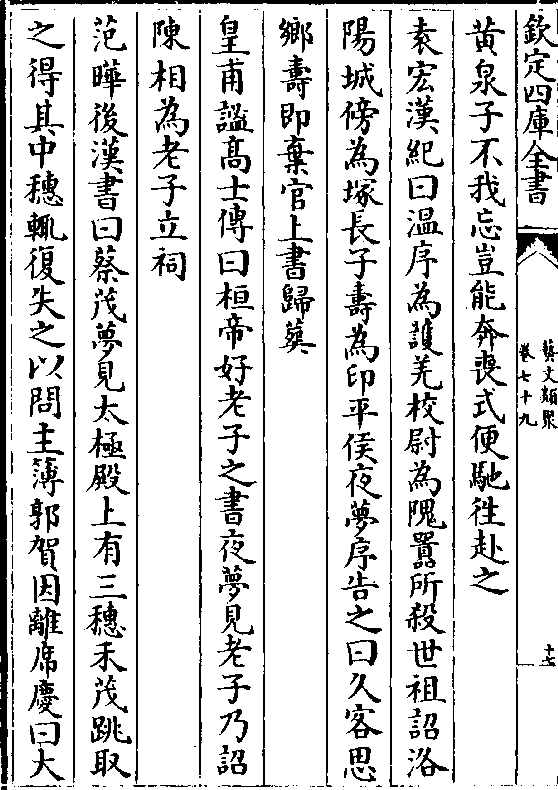 欽定四庫全書
藝文類聚
卷七十九
十七
黄泉子不我忘豈能奔喪式便馳徃赴之
袁宏漢紀曰温序為護羌校尉為隗囂所殺世祖詔洛
陽城傍為塚長子壽為印平侯夜夢序告之曰久客思
鄉壽即棄官上書歸葬
皇甫謐髙士傳曰桓帝好老子之書夜夢見老子乃詔
陳相為老子立祠
范曄後漢書曰蔡茂夢見太極殿上有三穗禾茂跳取
之得其中穗輒復失之以問主簿郭賀因離席慶曰大